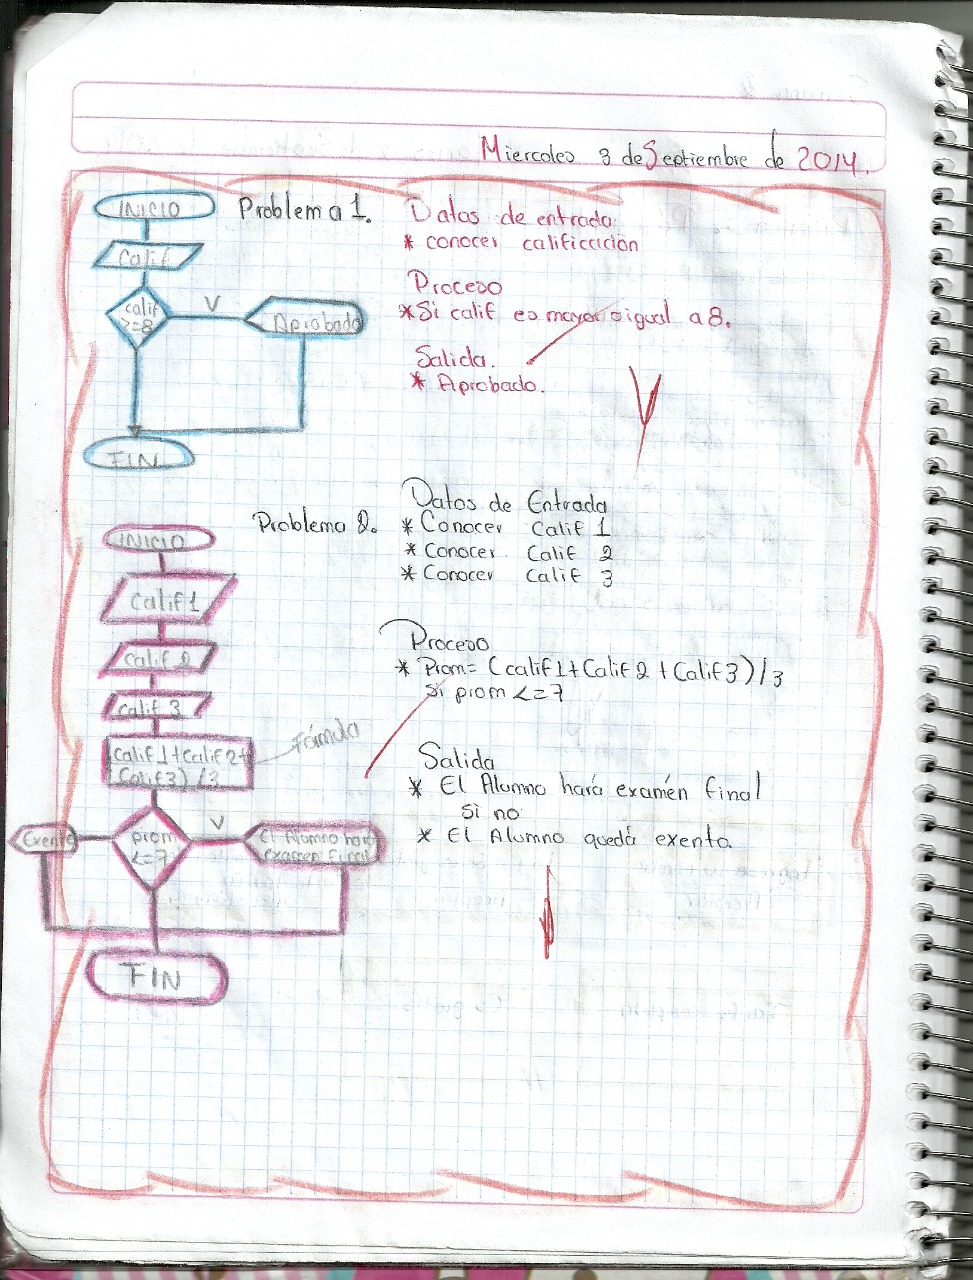 Miercoles 3 de Septiembre de 2014.
INICIO
Calif
calif
>=8
V
Aprobado
FIN
Problema 1.
Datos de entrada
* conocer calificación
Proceso
* Si calif es mayor o igual a 8.
Salida.
* Aprobado.
Problema 2.
INICIO
Calif 1
Calif 2
Calif 3
Calif 1+Calif 2+
Calif 3) /3
Fórmula
prom
<=7
V
Exento
El Alumno hará
examen final
FIN
Datos de Entrada
* Conocer Calif 1
* Conocer Calif 2
* Conocer Calif 3
Proceso
* Prom= (calif 1+Calif 2 + Calif 3)/3
si prom <=7
Salida
* El Alumno hará examén final
si no
* El Alumno quedá exento.